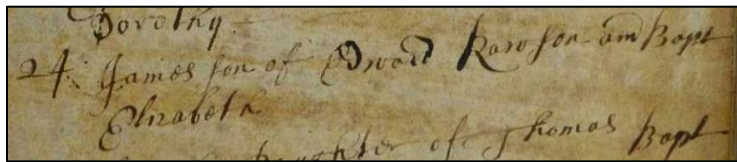 Dorothy
24 James son of Edward Rawson and Bapt
Elizabeth
daughter of Thomas Bapt